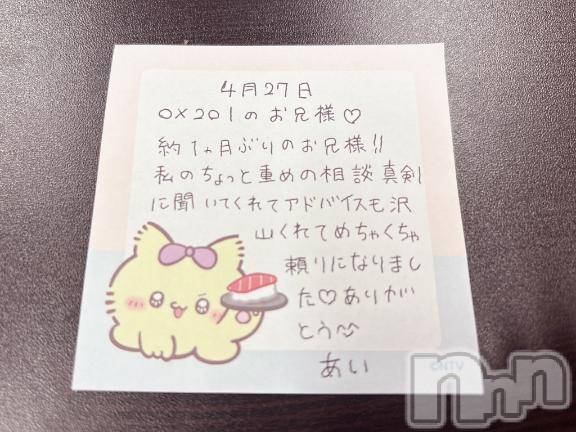 4月27日
OX201のお兄様♡
約1ヵ月ぶりのお兄様!!
私のちょっと重めの相談真剣
に聞いてくれてアドバイスも沢
山くれてめちゃくちゃ
頼りになりまし
た♡ありが
とう
あい
©NTV
nnn